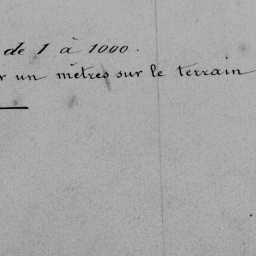 de 1 à 1000.
r un mètres sur le terrain